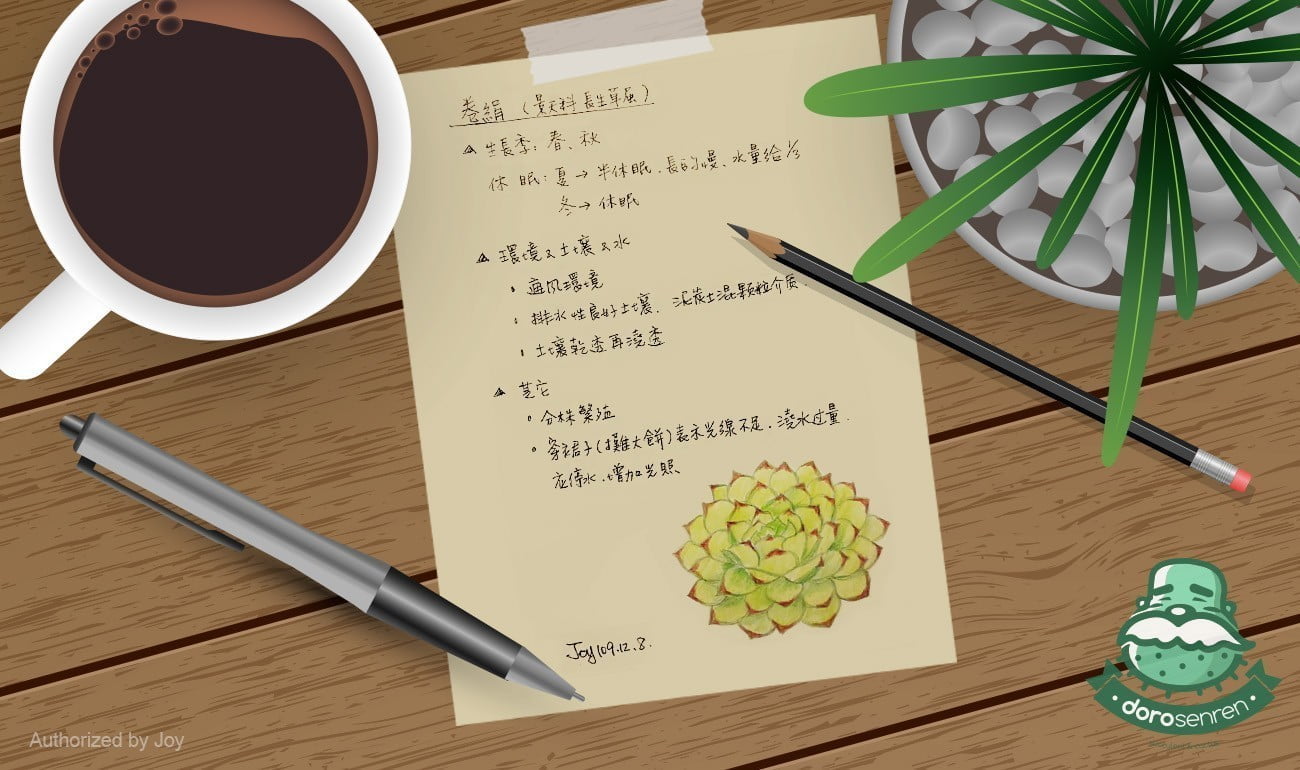 卷絹（景天科 長生草屬）
△ 生長季：春、秋
休眠：夏→半休眠，長的慢、水量給少
冬→休眠
△ 環境&土壤&水
• 通風環境
• 排水性良好土壤，泥炭土混顆粒介质.
• 土壤乾透再澆透
△ 其它
• 分株繁殖
• 穿裙子(攤大餅)表示光線不足，澆水过量.
应停水，增加光照
Joy 109.12.8.
dorosenren
Authorized by Joy